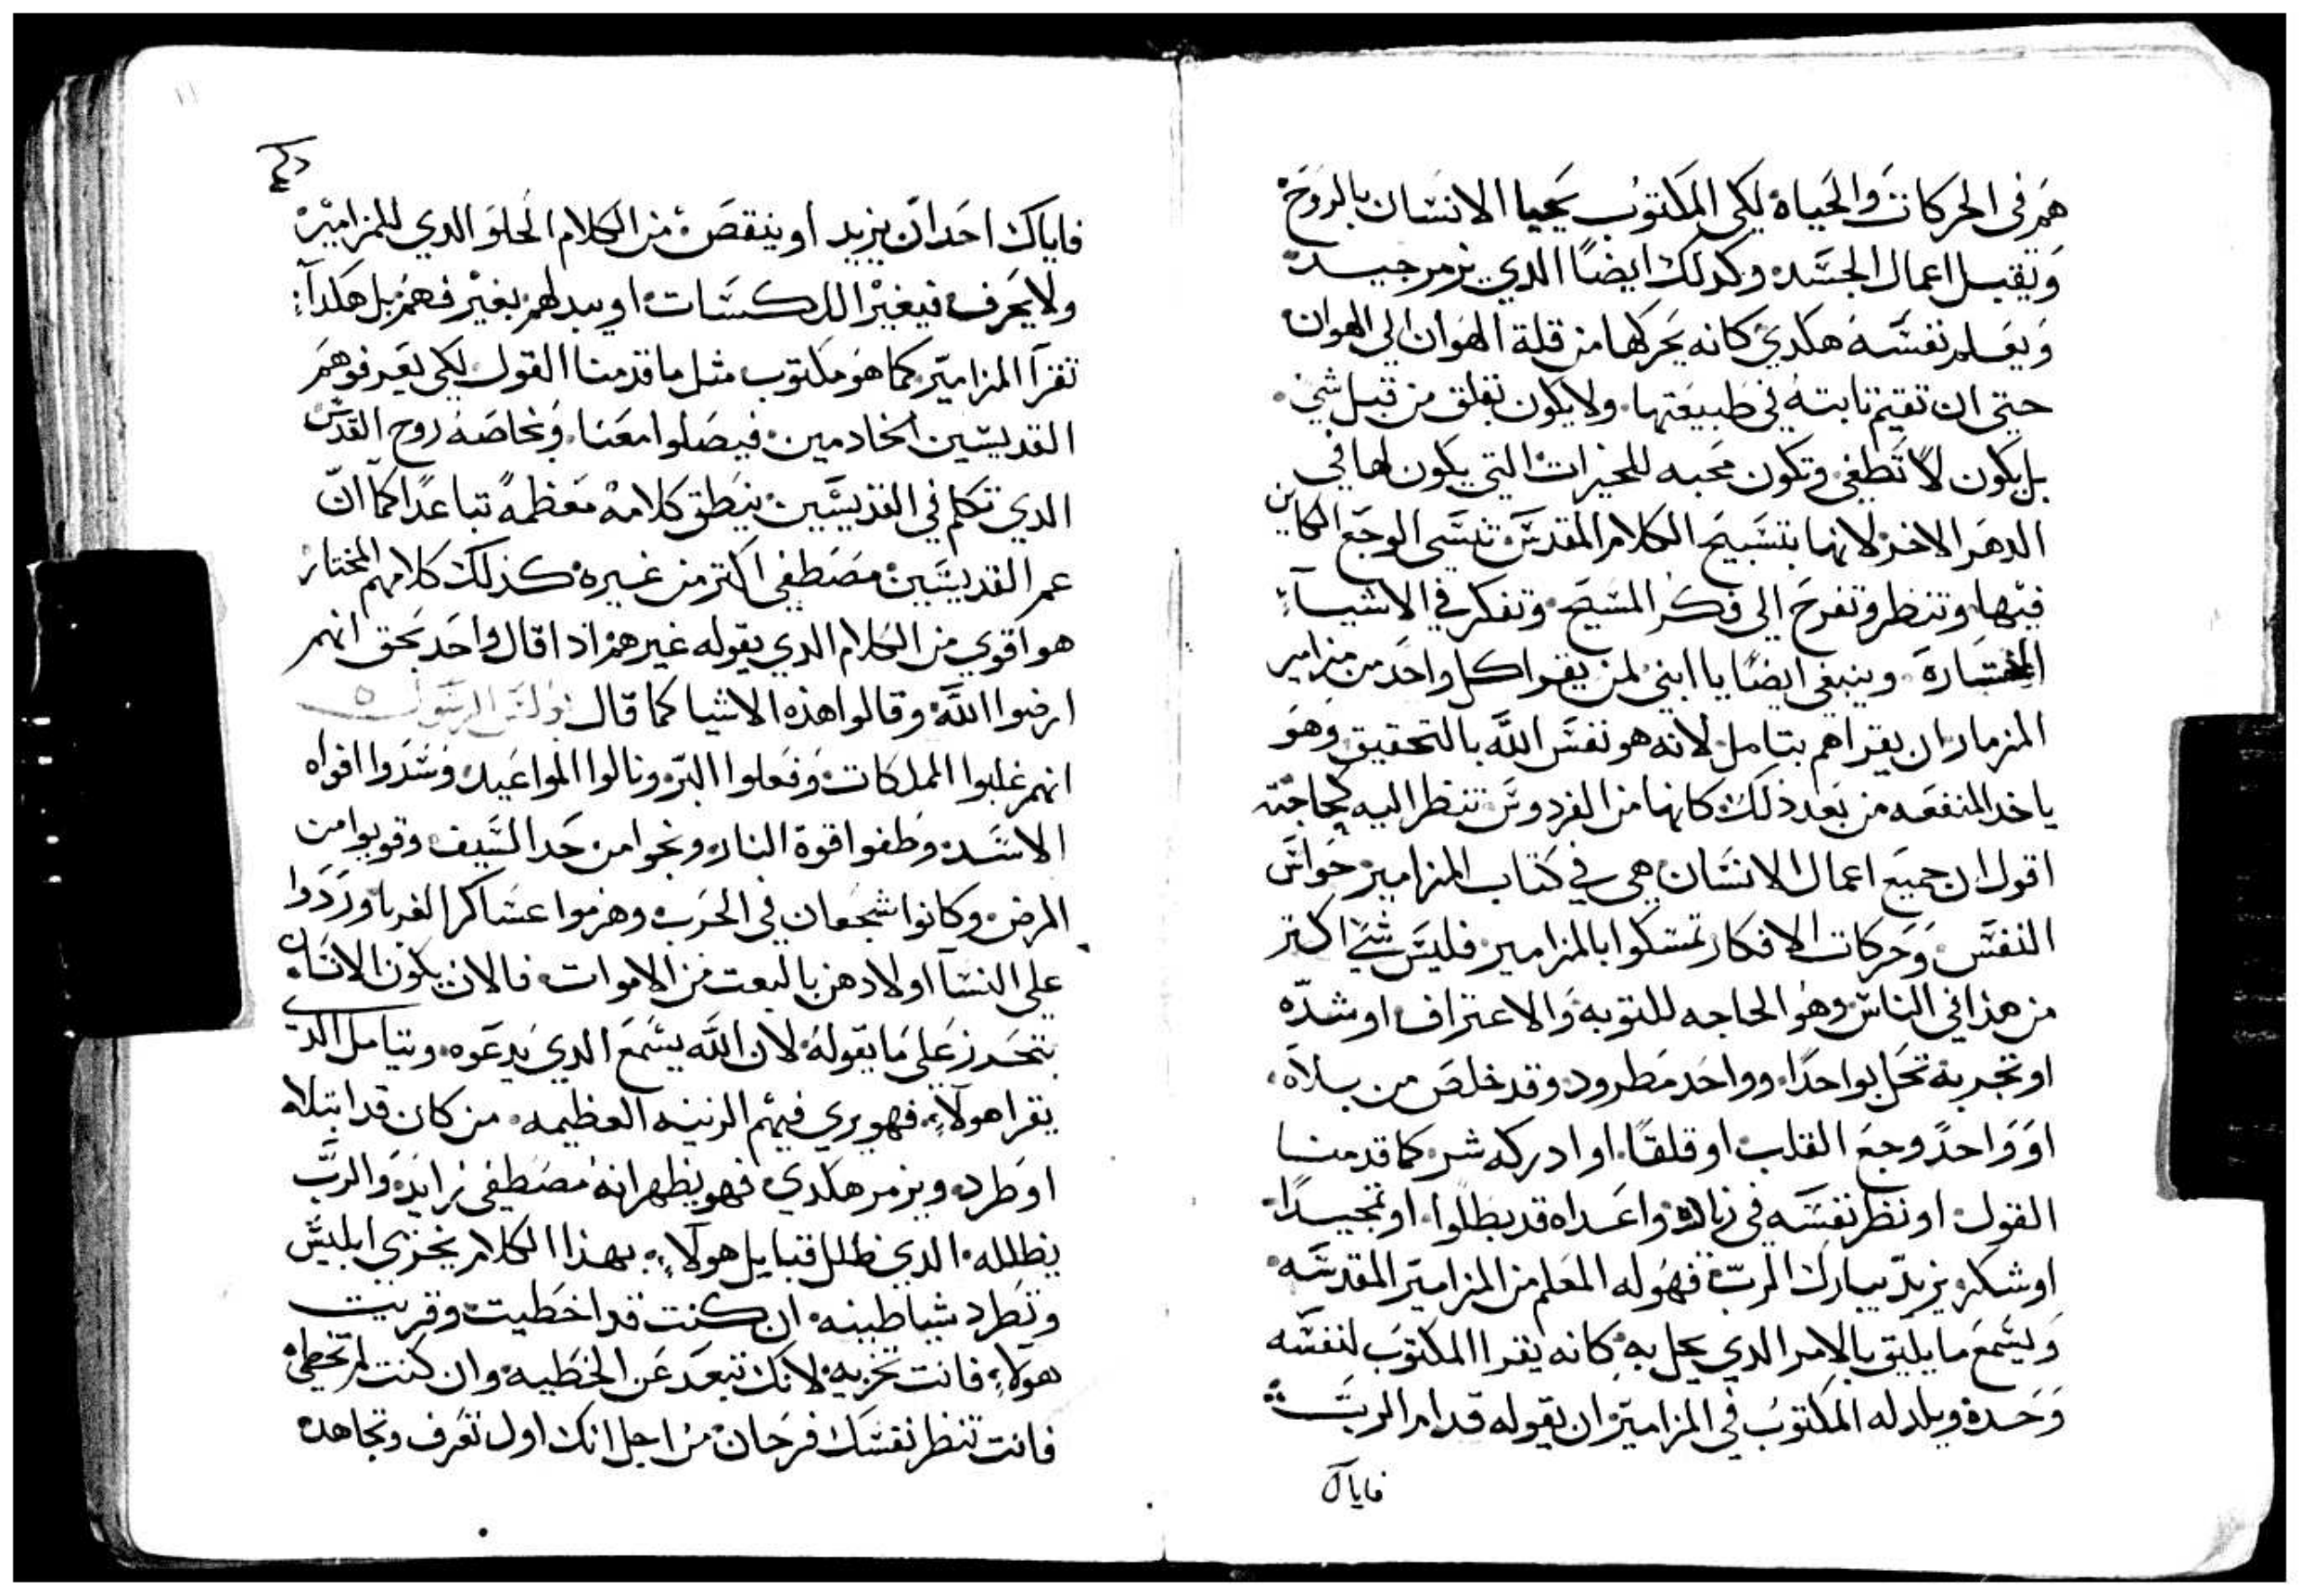 هم في الحركات والحياة لكي المكتوب يحيا الانسان بالروح
وتقبل اعمال الجسد وكدلك ايضًا الدي يزمر جيد
ويعلم نفسه هكدي كانه يحركها من قلة الهوان الي الهوان
حتى ان تقيم تابته في طبيعتها ولا يكون تقلق من قبل شي
بل يكون لا تطغي وتكون محبه للخيرات التي يكون لها في
الدهر الاخر لانها بتسبيح الكلام المقدس تنسي الوجع الكاين
فيها وتنظر وتفرح الى فكر المسيح وتفكر في الاشيآء
المختاره وينبغي ايضًا يا ابني لمن يقرا كل واحد من مزامير
المزمار ان يقراهم بتامل لانه هو نفس الله بالتحقيق وهو
ياخد المنفعه من بعد ذلك كانها من الفردوس تنظر اليه كحاجته
اقول ان جميع اعمال الانسان هي في كتاب المزامير حواس
النفس وحركات الافكار تمسكوا بالمزامير فليس شي اكتر
من هذا في الناس وهو الحاجه للتوبه والاعتراف او شدّه
او تجربة تحل بواحدًا وواحد مطرود وقد خلص من بلاه
او واحدً وجع القلب او قلقًا او ادركه شر كما قدمنا
القول او نظر نفسه في زياده واعداه قد بطلوا او تمجيدًا
او شكر يريد يبارك الرب فهوله المعلم من المزامير المقدسه
وليسمع ما يليق بالامر الدي يحل به كانه يقرا المكتوب لنفسه
وحده ويلد له المكتوب في المزامير ان يقوله قدام الرب
فاياك
١١
فاياك احد ان يزيد او ينقص من الكلام الحلو الدي للمزامير
ولا يحرف فيغير اللكسات او يبدلهم بغير فهم بل هكدا
تقرآ المزامير كما هو مكتوب مثل ما قدمنا القول لكي يعرفوهم
القديسين الخادمين فيصلوا معنا وبخاصه روح القدس
الدي تكلم في القديسين ينطق كلامه معظمة تباعدًا كما انّ
عمر القديسين مصطفي اكتر من غيره كذلك كلامهم المختار
هو اقوي من الكلام الدي يقوله غيرهم اذا قال واحد بحق انهم
ارضوا الله وقالوا هذه الاشيا كما قال بولس الرسول
انهم غلبوا المملكات وفعلوا البر ونالوا المواعيد وسدوا افواه
الاسد وطفوا قوة النار ونجوا من حد السيف وقويوا من
المرض وكانوا شجعان في الحرب وهزموا عساكر الغربا وردوا
علي النسآ اولادهن بالبعت من الاموات فالان يكون الانسان
يتحدرز علي ما يقوله لان الله يسمع الدي يدعوه ويتامل الدي
يقرا هولآء فهو يري فيهم الزينه العظيمه من كان قد ابتلاه
او طرد ويزمر هكدي فهو يظهر انه مصطفي زايد والرب
يظلله الدي ظلل قبايل هولآء بهذا الكلام تخزي ابليس
وتطرد شياطينه ان كنت قد اخطيت وقريت
هولآء فانت تخزيه لانك تبعد عن الخطيه وان كنت لم تخطي
فانت تنظر نفسك فرحان من اجل انك اول تعرف وتجاهد